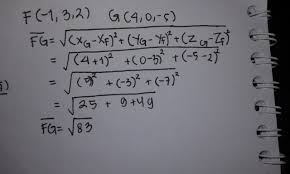 F(-1,3,2) G(4,0,-5)
FG = √(X_G-X_F)²+(Y_G-Y_F)²+(Z_G-Z_F)²
= √(4+1)²+(0-3)²+(-5-2)²
= √(5)²+(-3)²+(-7)²
= √25 + 9+49
FG = √83